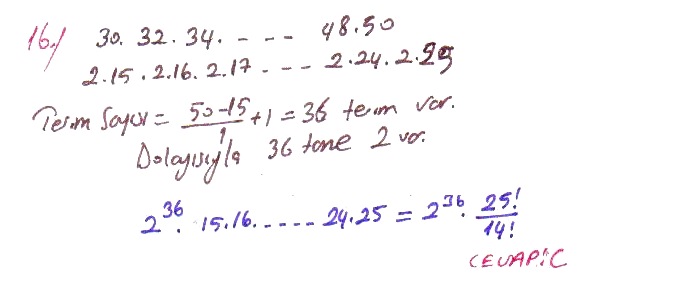 16.) 30. 32. 34. - - - - 48.50
2.15 . 2.16. 2.17 . - - - 2.24. 2.25
Terim Sayısı = \frac{50-15}{1} + 1 = 36 terim var.
Dolayısıyla 36 tane 2 var.
2^{36}. 15.16. ..... 24.25 = 2^{36}. \frac{25!}{14!}
CEVAP: C